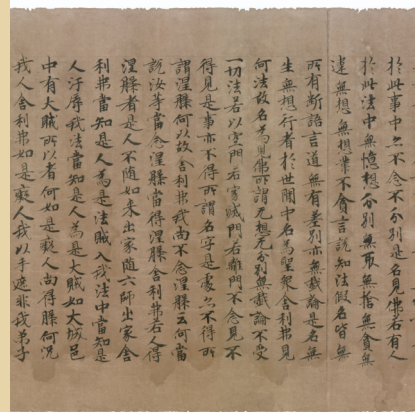 於此事中亦不念不分別是名見佛若有人
於此法中無憶想分別無取無捨無貪無
違無想無業不貪言說知法假名皆無
所有斷諸言道無有差別亦無戲論是名無
生無想行者於世間中名為聖眾舍利弗見
何法故名為見佛所謂無想無分別無戲論不受
一切法若以空門若寂滅門若離門不念見不
得見是事亦不得所謂名字是處亦不得所
謂涅槃何以故舍利弗我尚不念涅槃云何當
說汝等當念涅槃當得涅槃舍利弗若人得
涅槃者是人不隨如來出家隨六師出家舍
利弗當知是人為是法賊入我法中當知是
人汙辱我法當知是人為是大賊如大城邑
中有大賊所以者何如是癡人尚得涅槃何況
我人舍利弗如是癡人我以手遮非我弟子